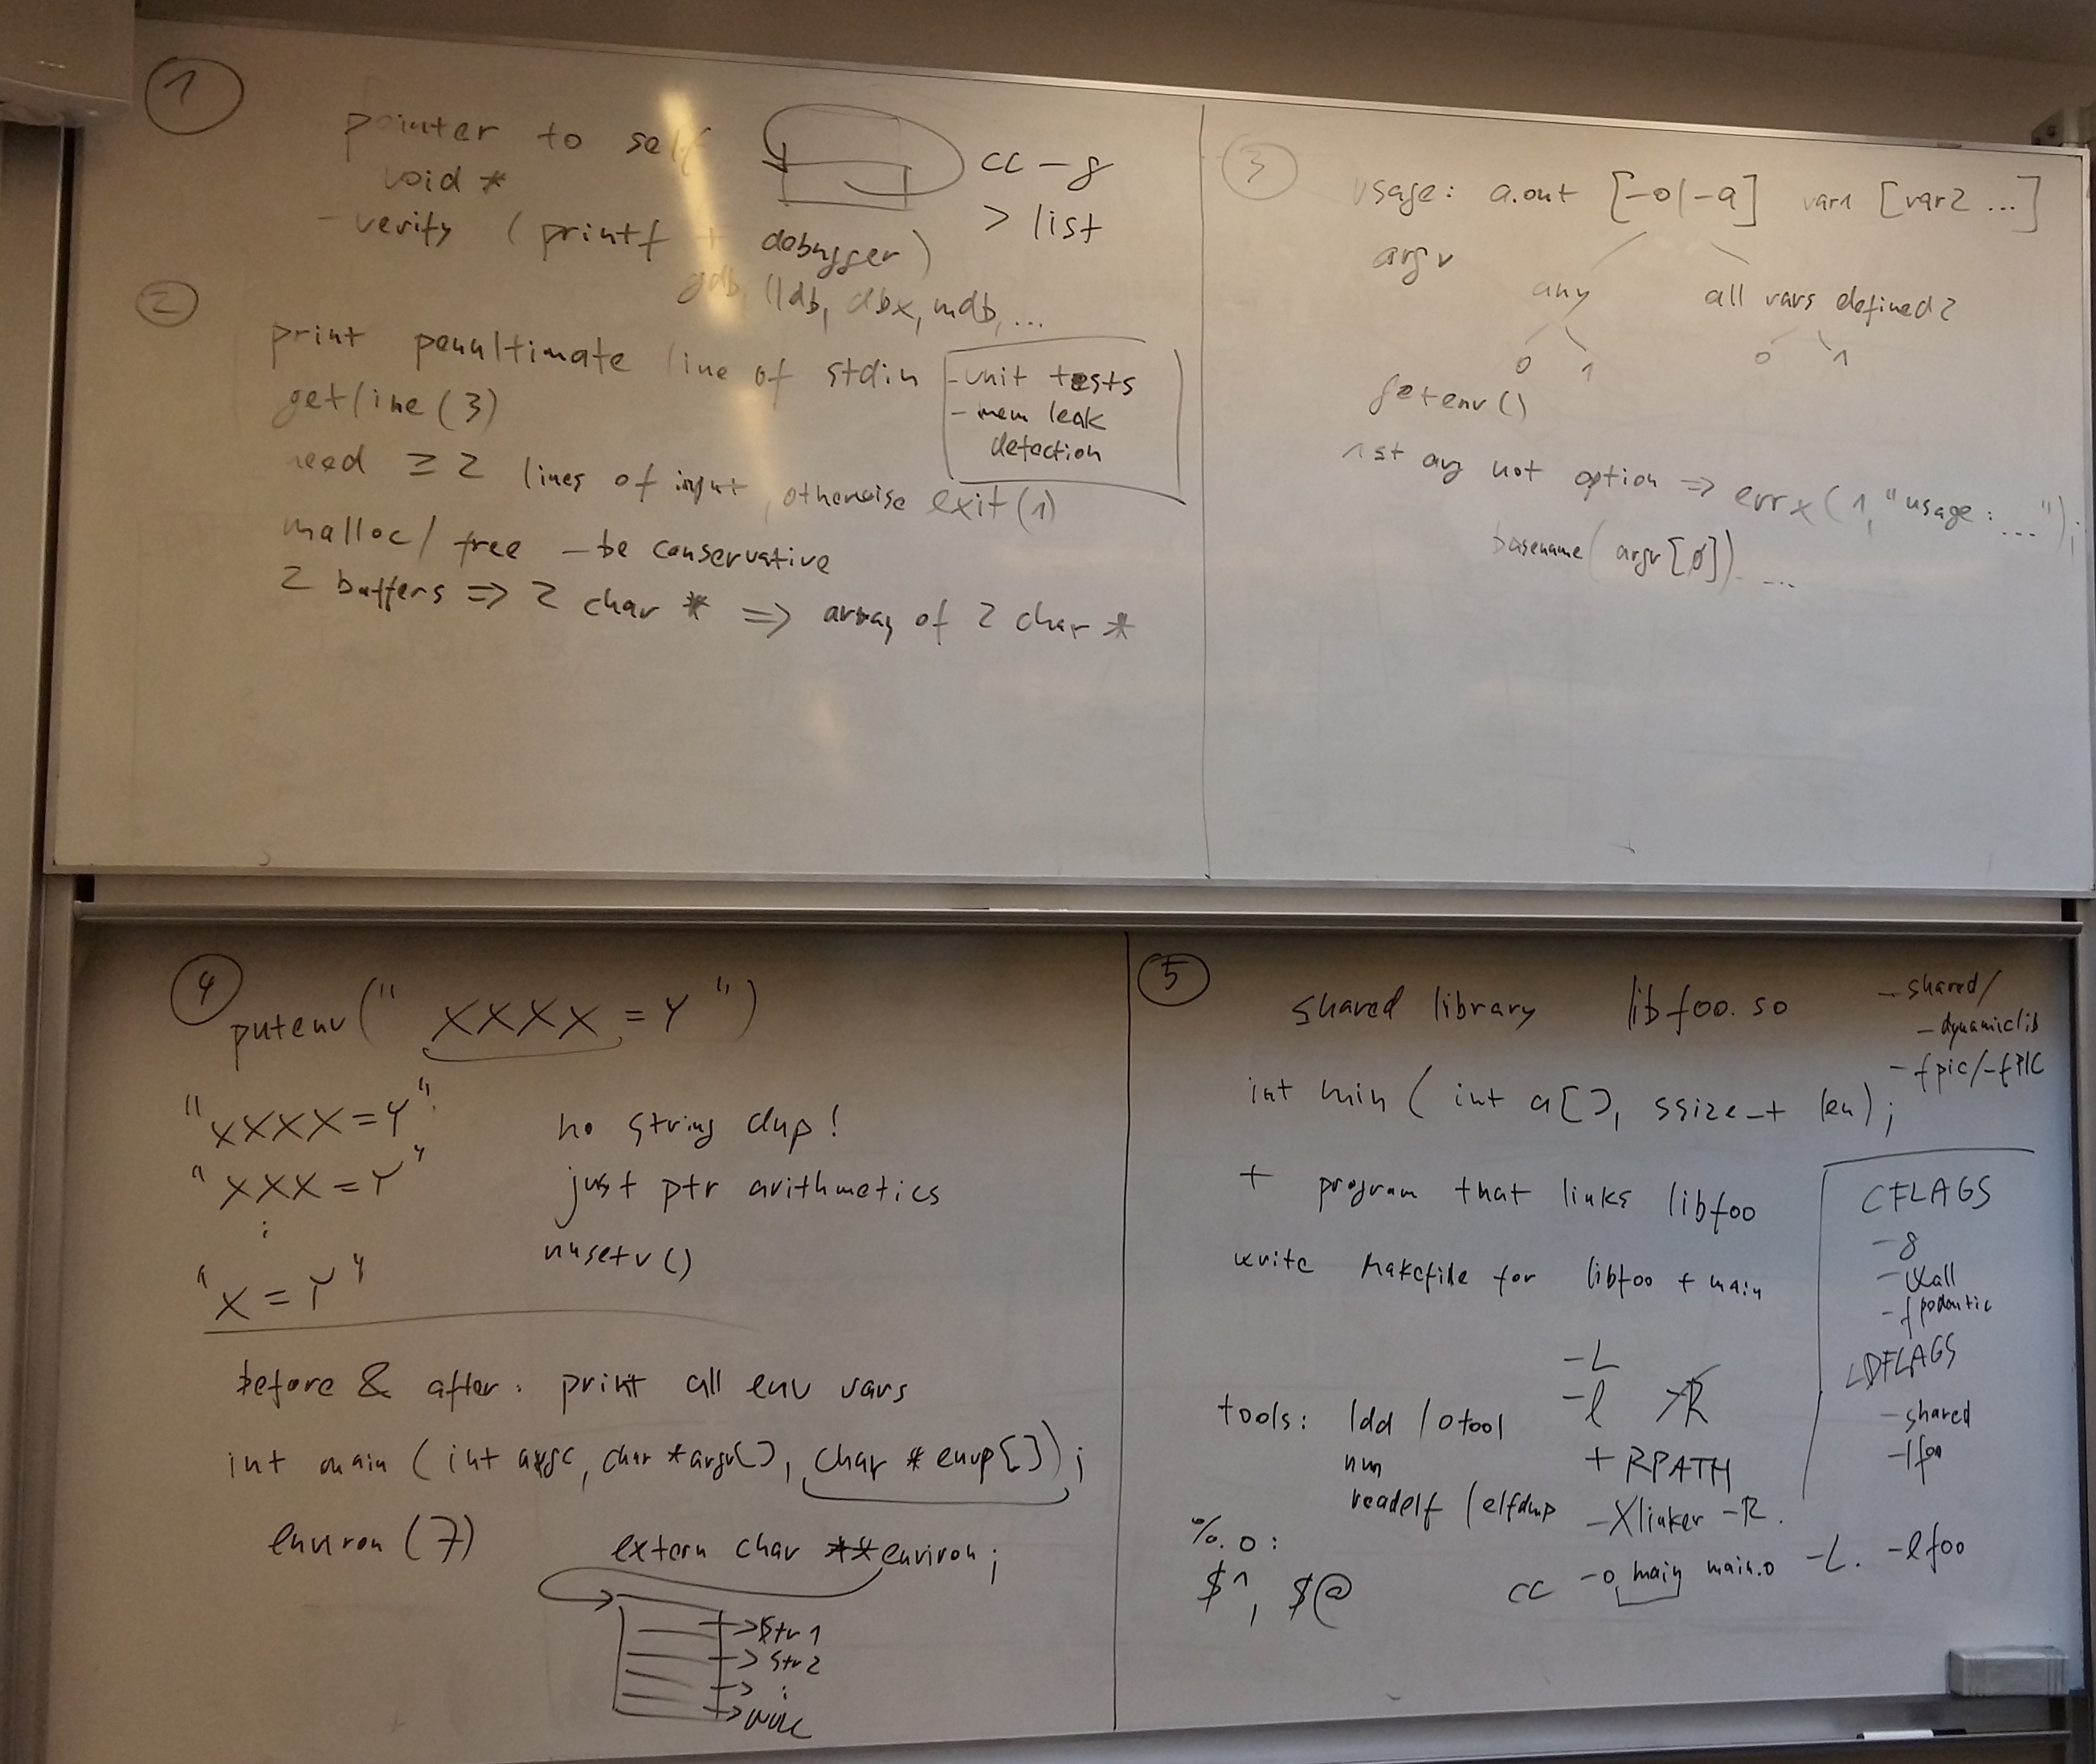 1
pointer to self
void *
- verify (printf + debugger)
gdb, lldb, dbx, mdb, ...
cc -g
> list
2
print penultimate line of stdin
getline(3)
need ≥ 2 lines of input, otherwise exit(1)
malloc/free - be conservative
2 buffers => 2 char * => array of 2 char *
- unit tests
- mem leak
detection
3
usage: a.out [-o|-a] var1 [var2 ...]
argv
any
all vars defined?
0 1
0 1
getenv()
1st arg not option => errx(1, "usage: ...");
basename(argv[0]) ...
4
putenv("XXXX=Y")
"XXXX=Y"
"XXX=Y"
:
"X=Y"
no string dup!
just ptr arithmetics
before & after: print all env vars
int main (int argc, char *argv[], char *envp[]);
environ(7)
extern char **environ;
str1
str2
:
NULL
5
shared library libfoo.so
-shared/
-dynamiclib
-fpic/-fPIC
int min (int a[], ssize_t len);
+ program that links libfoo
write Makefile for libfoo + main
CFLAGS
-g
-Wall
-fpedantic
LDFLAGS
-shared
-lfoo
-L
-l -R
+ RPATH
-Xlinker -R.
tools: ldd / otool
nm
readelf / elfdump
%.o:
$^, $@
cc -o main main.o -L. -lfoo